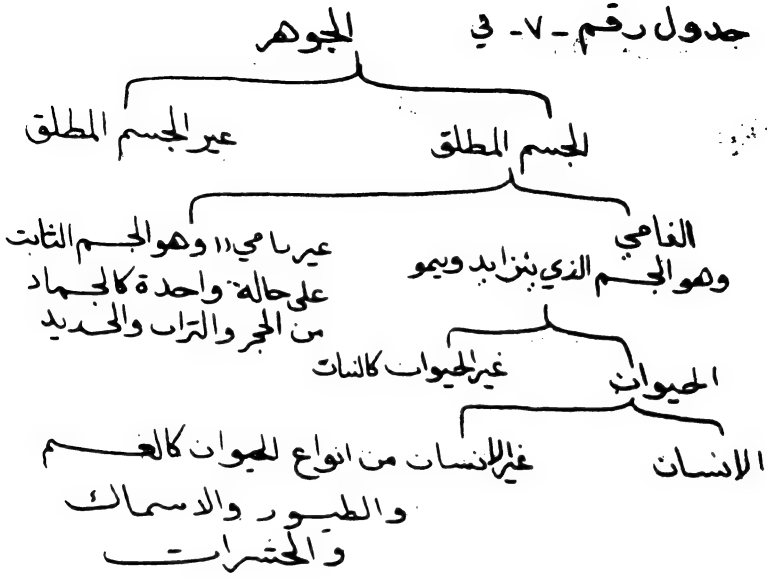 جدول رقم - ٧ - في
الجوهر
الجسم المطلق
غير الجسم المطلق
النامي
وهو الجسم الذي يتزايد وينمو
غير نامي)) وهو الجسم الثابت
على حالة واحدة كالجماد
من الحجر والتراب والحديد
الحيوان
غير الحيوان كالنبات
الإنسان
غير الإنسان من انواع الحيوان كالغنم
والطيور والاسماك
والحشرات